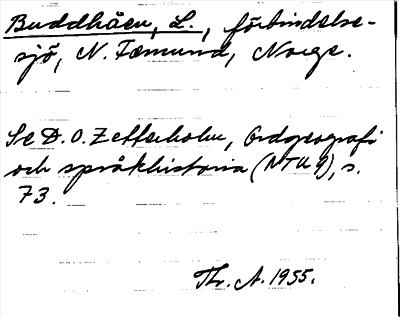 Buddhåen, L., förbindelse-
sjö, N. Fæmund, Norge.
Se D. O. Zetterholm, Ordgeografi
och språkhistoria (NTU 9), s.
73.
Thr. A. 1955.